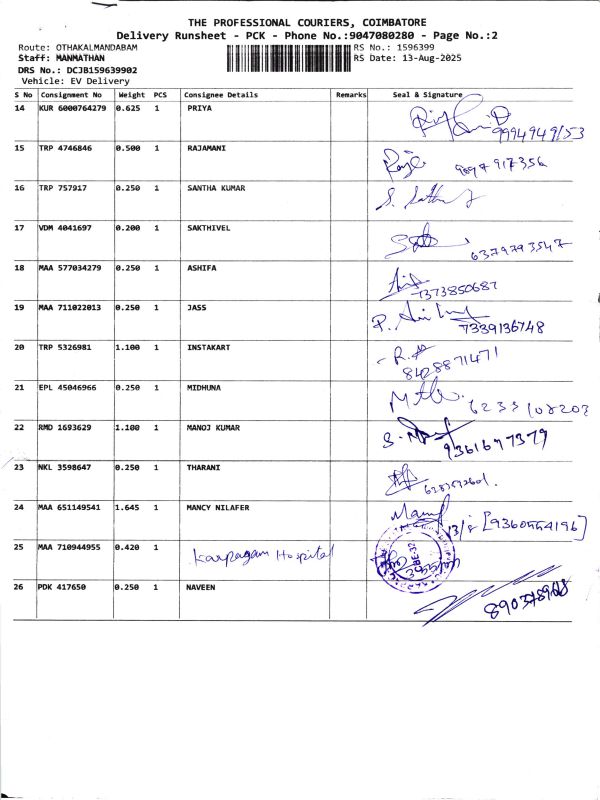 THE PROFESSIONAL COURIERS, COIMBATORE
Delivery Runsheet - PCK - Phone No.:9047080280 - Page No.:2
Route: OTHAKALMANDABAM RS No.: 1596399
Staff: MANMATHAN RS Date: 13-Aug-2025
DRS No.: DCJB159639902
Vehicle: EV Delivery
S No Consignment No Weight PCS Consignee Details Remarks Seal & Signature
14 KUR 6000764279 0.625 1 PRIYA
9994949153
15 TRP 4746846 0.500 1 RAJAMANI
9097917356
16 TRP 757917 0.250 1 SANTHA KUMAR
17 VDM 4041697 0.200 1 SAKTHIVEL
6379793547
18 MAA 577034279 0.250 1 ASHIFA
7373850687
19 MAA 711022013 0.250 1 JASS
7339136748
20 TRP 5326981 1.100 1 INSTAKART
8428871471
21 EPL 45046966 0.250 1 MIDHUNA
22 RMD 1693629 1.100 1 MANOJ KUMAR
9361697379
23 NKL 3598647 0.250 1 THARANI
24 MAA 651149541 1.645 1 MANCY NILAFER
13/8
25 MAA 710944955 0.420 1 Karpagam Hospital
26 PDK 417650 0.250 1 NAVEEN